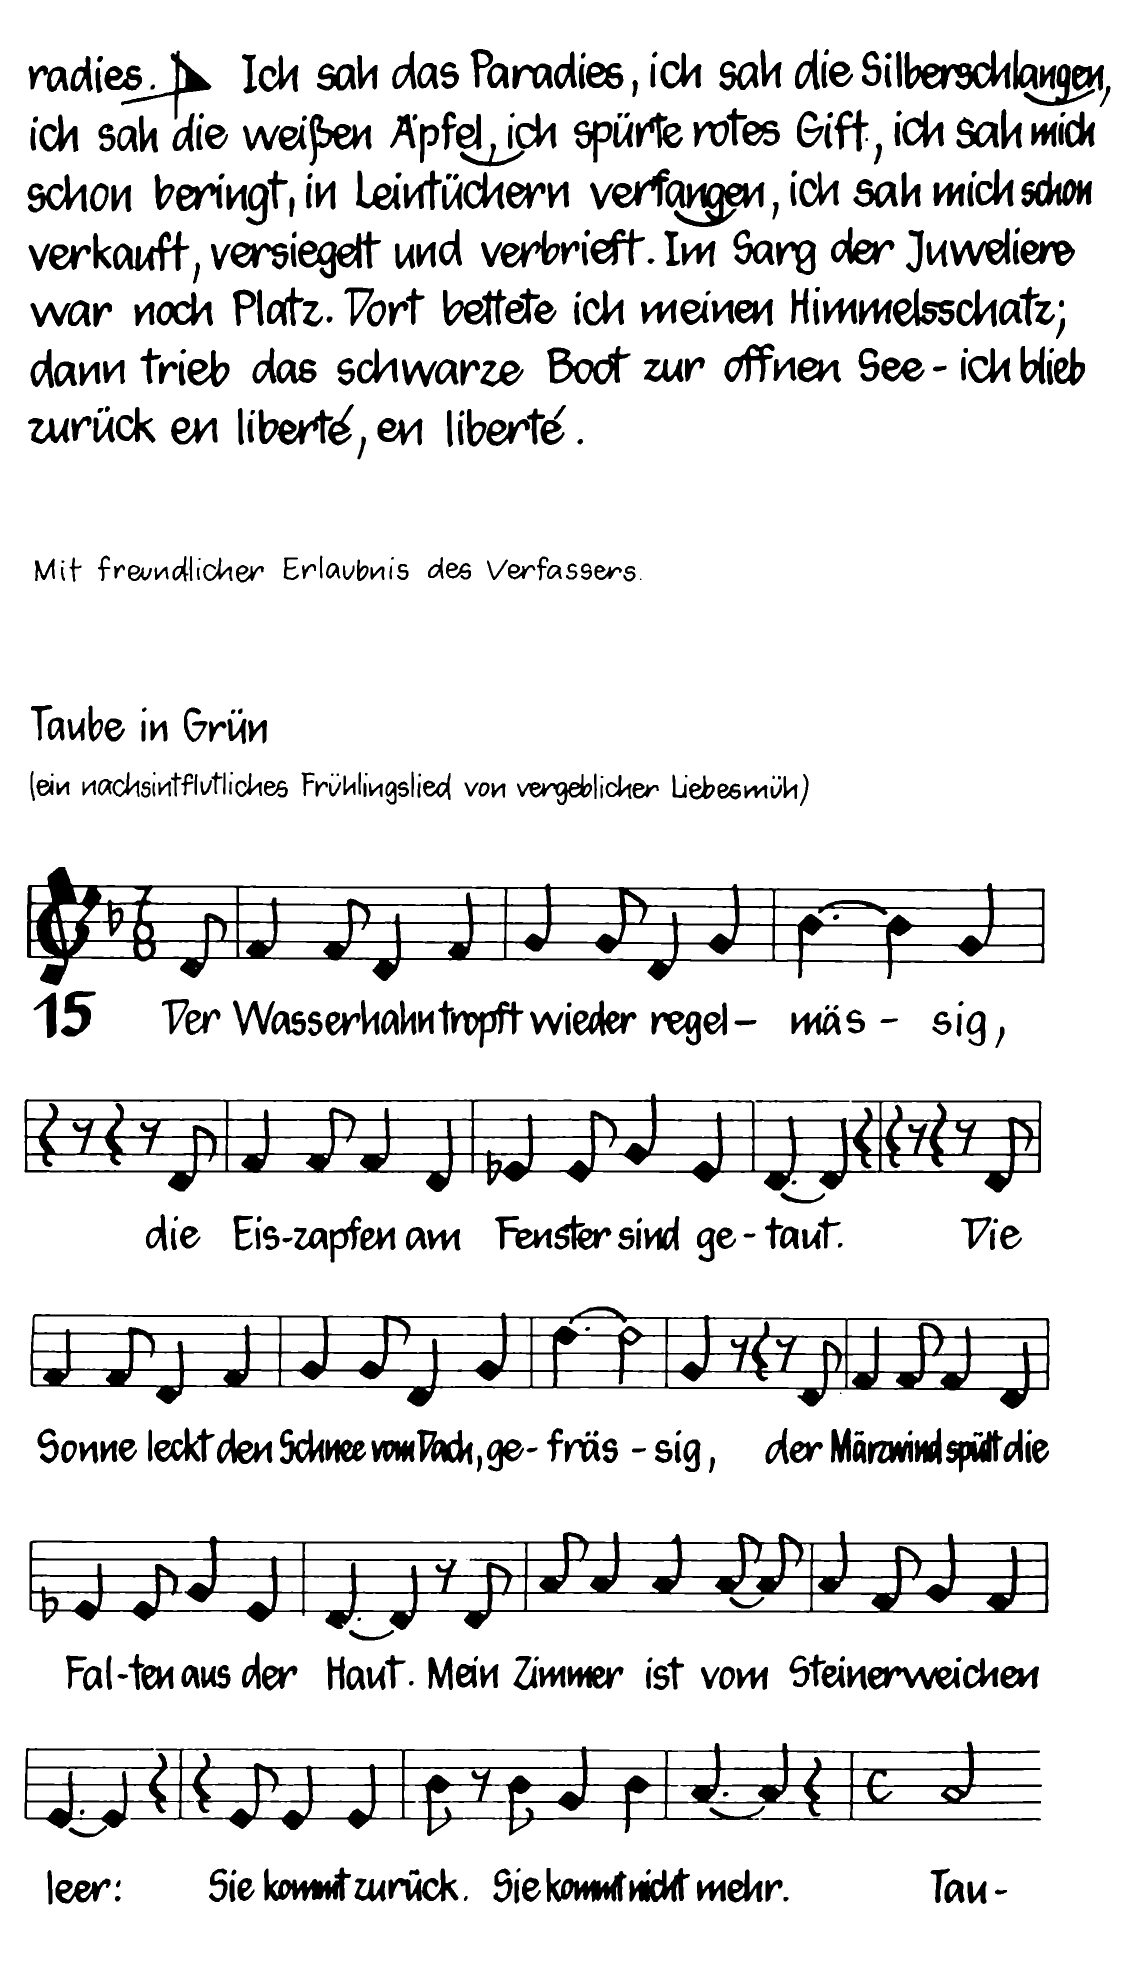 radies. Ich sah das Paradies, ich sah die Silberschlangen,
ich sah die weißen Äpfel, ich spürte rotes Gift, ich sah mich
schon beringt, in Leintüchern verfangen, ich sah mich schon
verkauft, versiegelt und verbrieft. Im Sarg der Juweliere
war noch Platz. Dort bettete ich meinen Himmelsschatz;
dann trieb das schwarze Boot zur offnen See - ich blieb
zurück en liberté, en liberté.
Mit freundlicher Erlaubnis des Verfassers.
Taube in Grün
(ein nachsintflutliches Frühlingslied von vergeblicher Liebesmüh)
7
8
15 Der Wasserhahn tropft wieder regel- mäs - sig,
die Eis-zapfen am Fenster sind ge-taut. Die
Sonne leckt den Schnee vom Dach, ge- fräs - sig, der Märzwind spült die
Fal-ten aus der Haut. Mein Zimmer ist vom Steinerweichen
C
leer: Sie kommt zurück. Sie kommt nicht mehr. Tau-